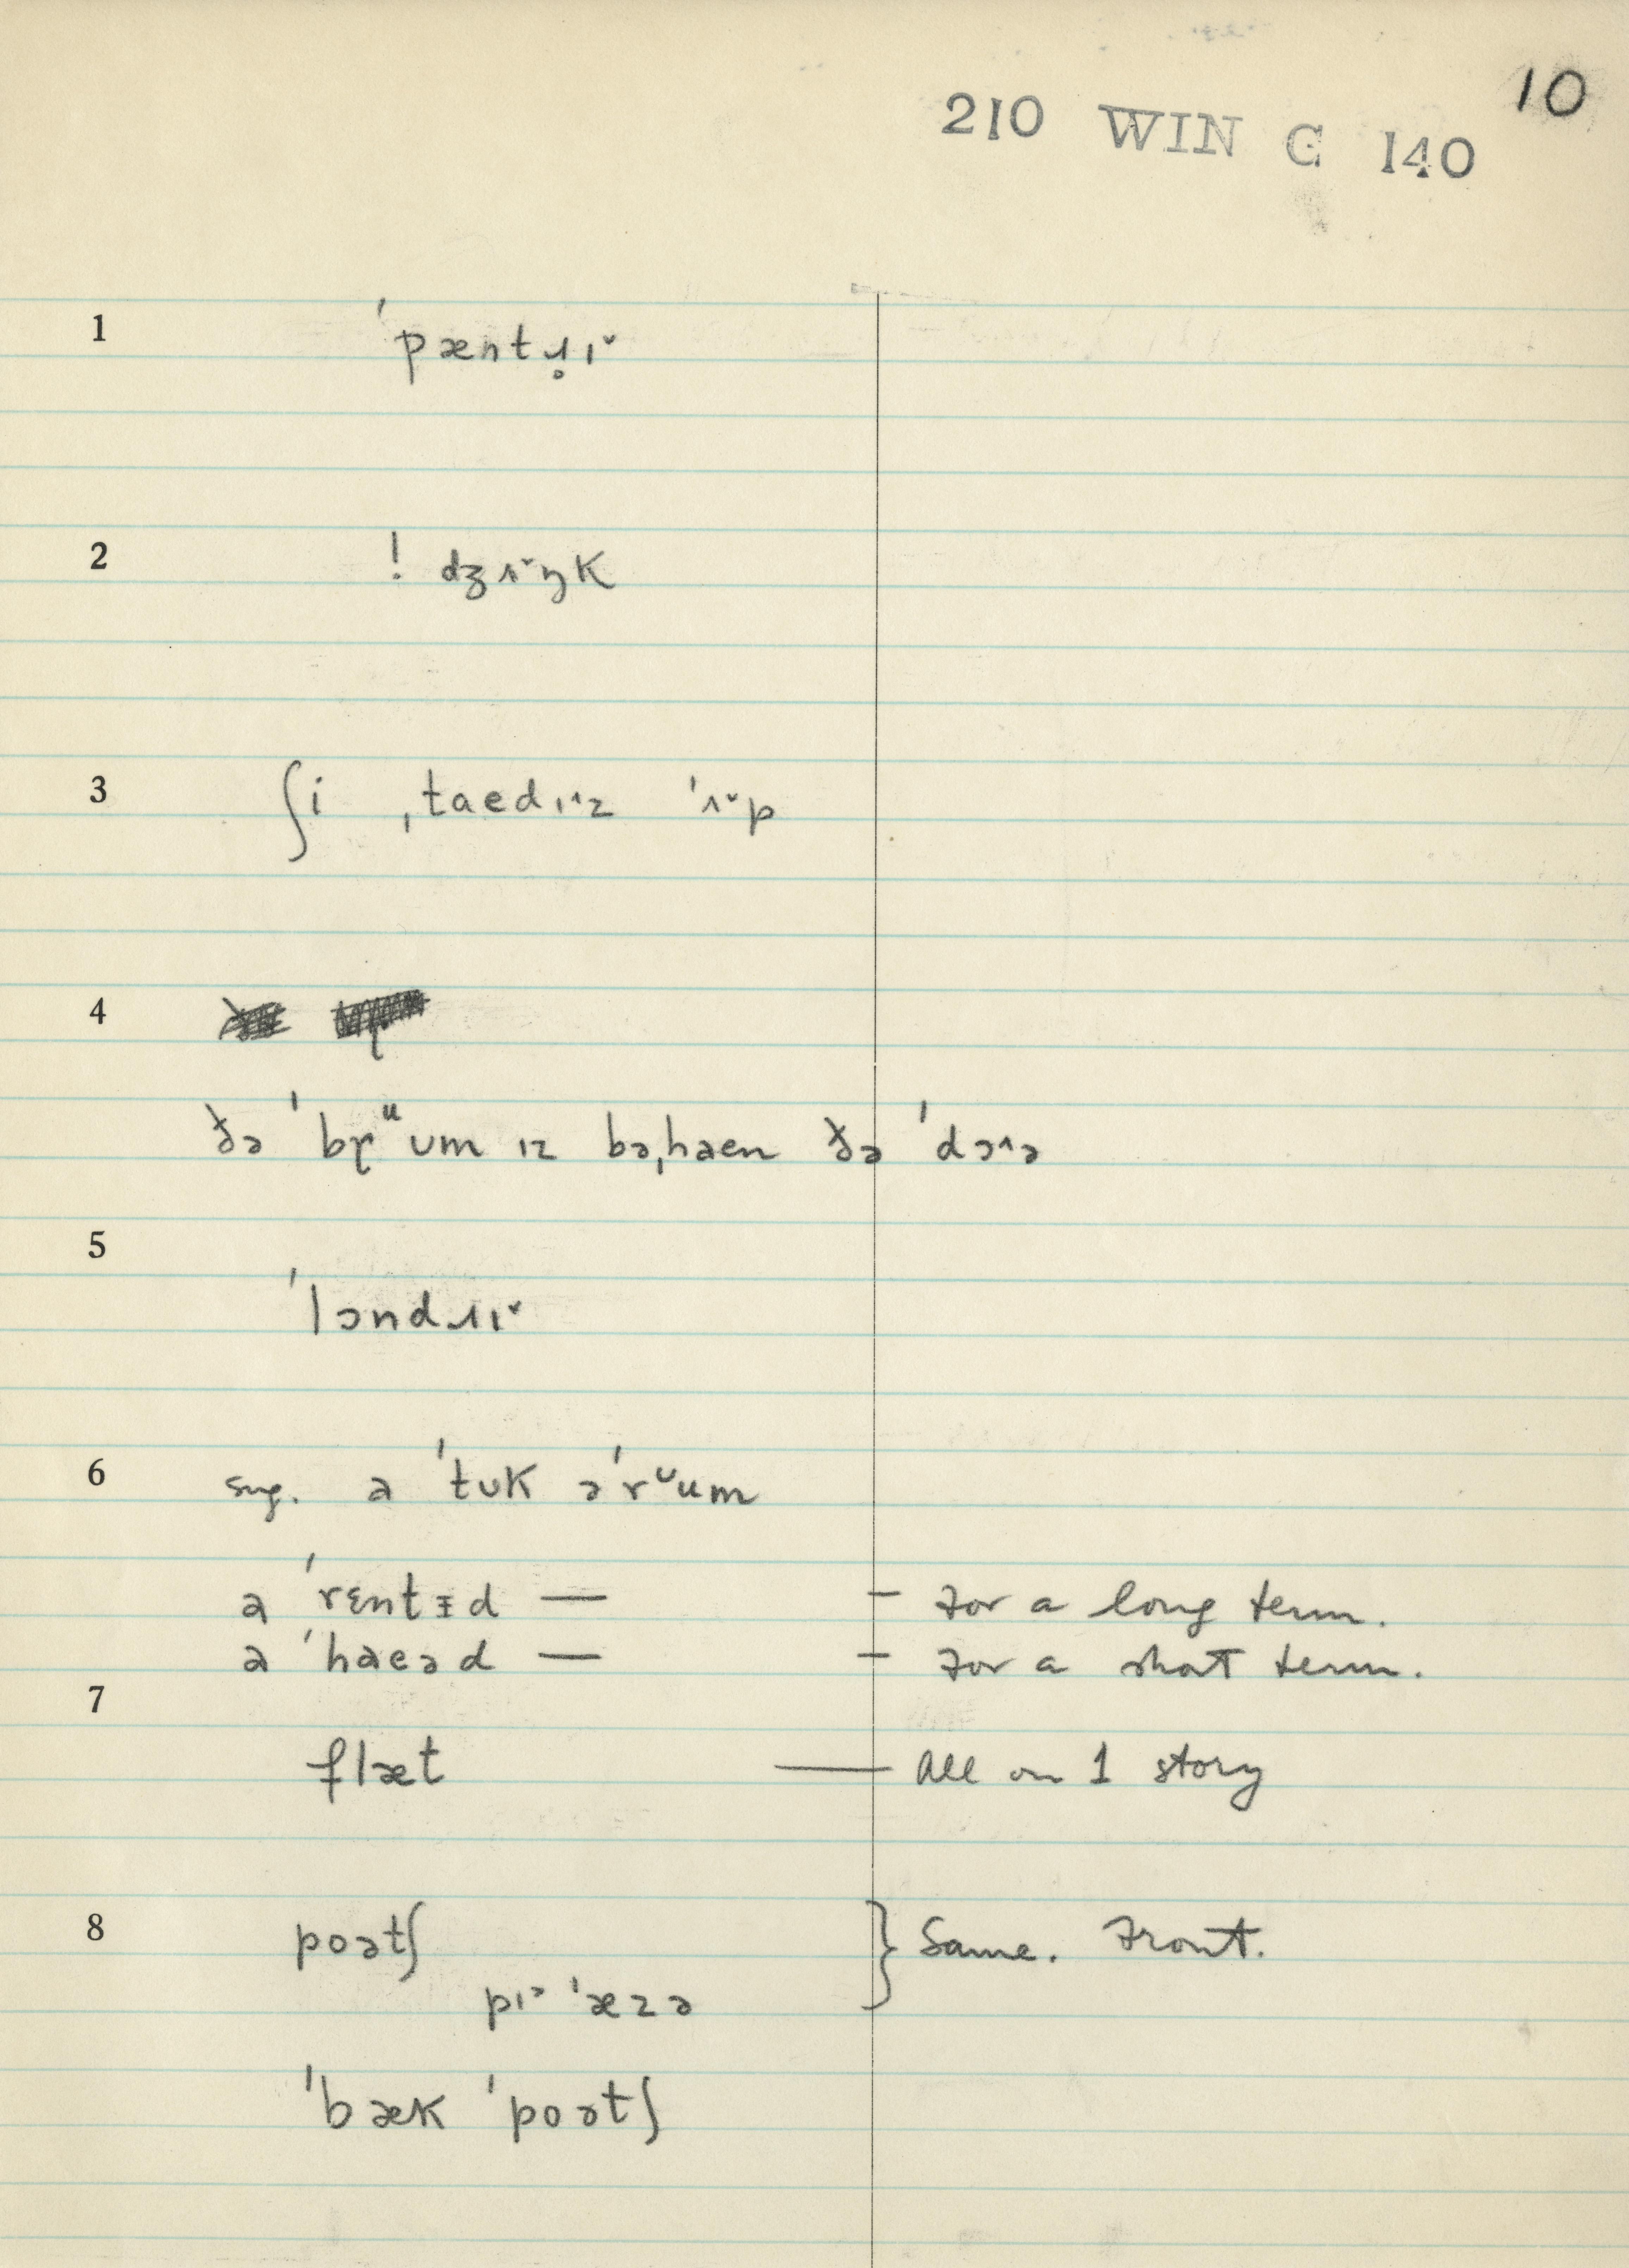 10
210 WIN C 140
1 ˈpæntɹ̥ɪˇ
2 ! dʒʌˇŋk
3 ʃi ˌtaedɪ˄z ˈʌˇp
4
ðə ˈbɽᵘʊm ɪz bəˌhaen ðə ˈdɔ˄ə
5
ˈlɔndɹɪˇ
6 sug. a ˈtʊk əˈrᶷum
a ˈrɛntᵻd — – For a long term.
a ˈhaeəd — – For a short term.
7
flæt — All on 1 story
8 poətʃ } Same. Front.
pɪᵊ ˈæzə
ˈbæk ˈpoətʃ